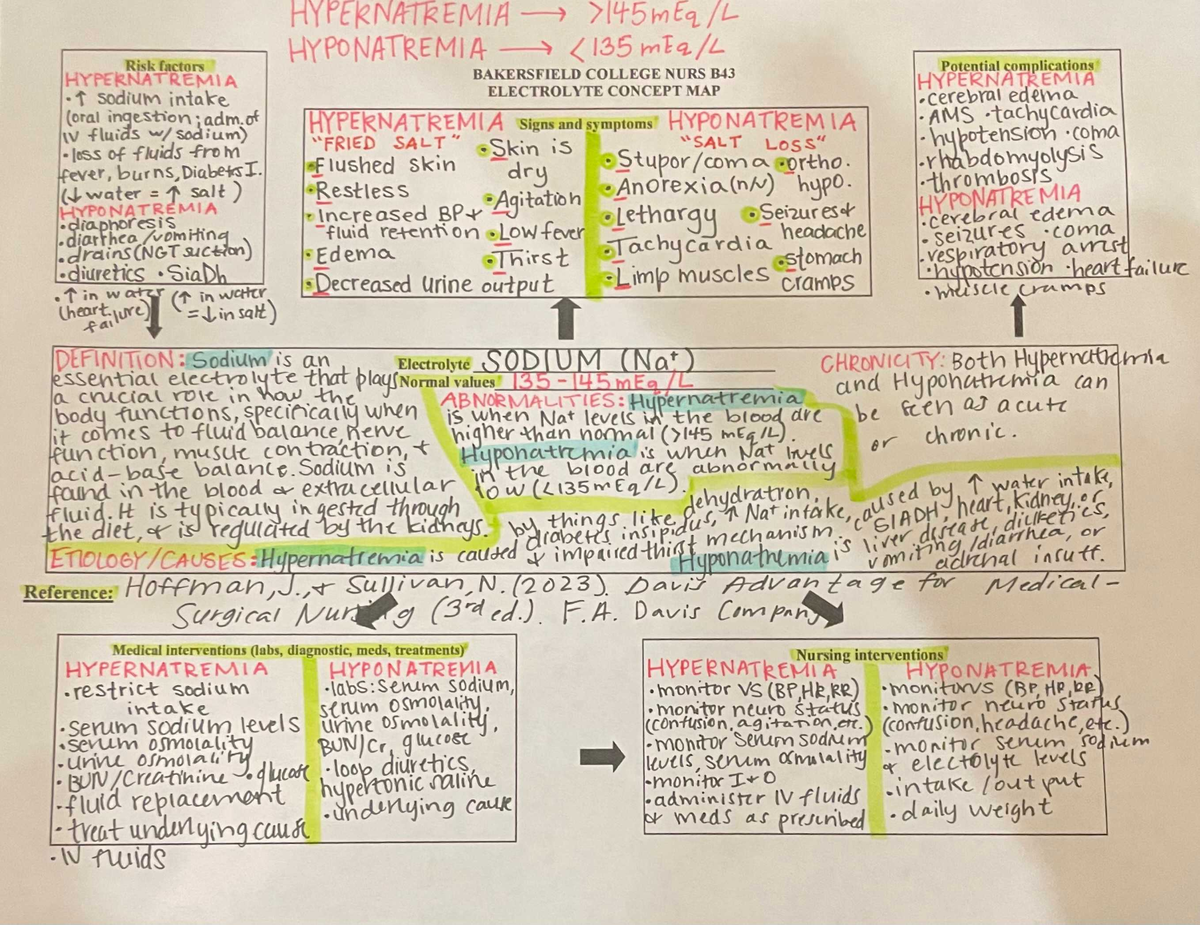 HYPERNATREMIA → >145mEq/L
HYPONATREMIA → <135 mEq/L
BAKERSFIELD COLLEGE NURS B43
ELECTROLYTE CONCEPT MAP
Risk factors
HYPERNATREMIA
• ↑ sodium intake
(oral ingestion; adm. of
IV fluids w/ sodium)
• loss of fluids from
fever, burns, Diabetes I.
(↓ water = ↑ salt)
HYPONATREMIA
• diaphoresis
• diarrhea/vomiting
• drains (NGT suction)
• diuretics • SiaDh
• ↑ in water (↑ in water
(heart failure) = ↓ in salt)
Signs and symptoms
HYPERNATREMIA
"FRIED SALT"
• Flushed skin
• Restless
• Increased BP +
fluid retention
• Edema
• Decreased urine output
• Skin is
dry
• Agitation
• Low fever
• Thirst
HYPONATREMIA
"SALT LOSS"
• Stupor/coma
• Anorexia (n/v)
• Lethargy
• Tachycardia
• Limp muscles
• ortho.
hypo.
• Seizures +
headache
• stomach
cramps
Potential complications
HYPERNATREMIA
• cerebral edema
• AMS • tachycardia
• hypotension • coma
• rhabdomyolysis
• thrombosis
HYPONATREMIA
• cerebral edema
• seizures • coma
• respiratory arrest
• hypotension • heart failure
• muscle cramps
Electrolyte SODIUM (Na⁺)
Normal values 135-145mEq/L
DEFINITION: Sodium is an
essential electrolyte that plays
a crucial role in how the
body functions, specifically when
it comes to fluid balance, nerve
function, muscle contraction, +
acid-base balance. Sodium is
found in the blood & extracellular
fluid. It is typically ingested through
the diet, & is regulated by the kidneys.
ABNORMALITIES: Hypernatremia
is when Na⁺ levels in the blood are
higher than normal (>145 mEq/L).
Hyponatremia is when Na⁺ levels
in the blood are abnormally
low (<135mEq/L).
CHRONICITY: Both Hypernatremia
and Hyponatremia can
be seen as acute
or chronic.
ETIOLOGY/CAUSES: Hypernatremia is caused
by things like dehydration,
diabetes insipidus, ↑ Na⁺ intake,
+ impaired thirst mechanism.
Hyponatremia is
caused by ↑ water intake,
SIADH, heart, kidney, or
liver disease, diuretics,
vomiting/diarrhea, or
adrenal insuff.
Reference: Hoffman, J., & Sullivan, N. (2023). Davis Advantage for Medical-
Surgical Nursing (3rd ed.). F.A. Davis Company
Medical interventions (labs, diagnostic, meds, treatments)
HYPERNATREMIA
• restrict sodium
intake
• serum sodium levels
• serum osmolality
• urine osmolality
• BUN/Creatinine • glucose
• fluid replacement
• treat underlying cause
• IV fluids
HYPONATREMIA
• labs: serum sodium,
serum osmolality,
urine osmolality,
BUN/Cr, glucose
• loop diuretics,
hypertonic saline
• underlying cause
Nursing interventions
HYPERNATREMIA
• monitor VS (BP, HR, RR)
• monitor neuro status
(confusion, agitation, etc.)
• monitor serum sodium
levels, serum osmolality
• monitor I + O
• administer IV fluids
or meds as prescribed
HYPONATREMIA
• monitor VS (BP, HR, RR)
• monitor neuro status
(confusion, headache, etc.)
• monitor serum sodium
& electolyte levels
• intake/output
• daily weight